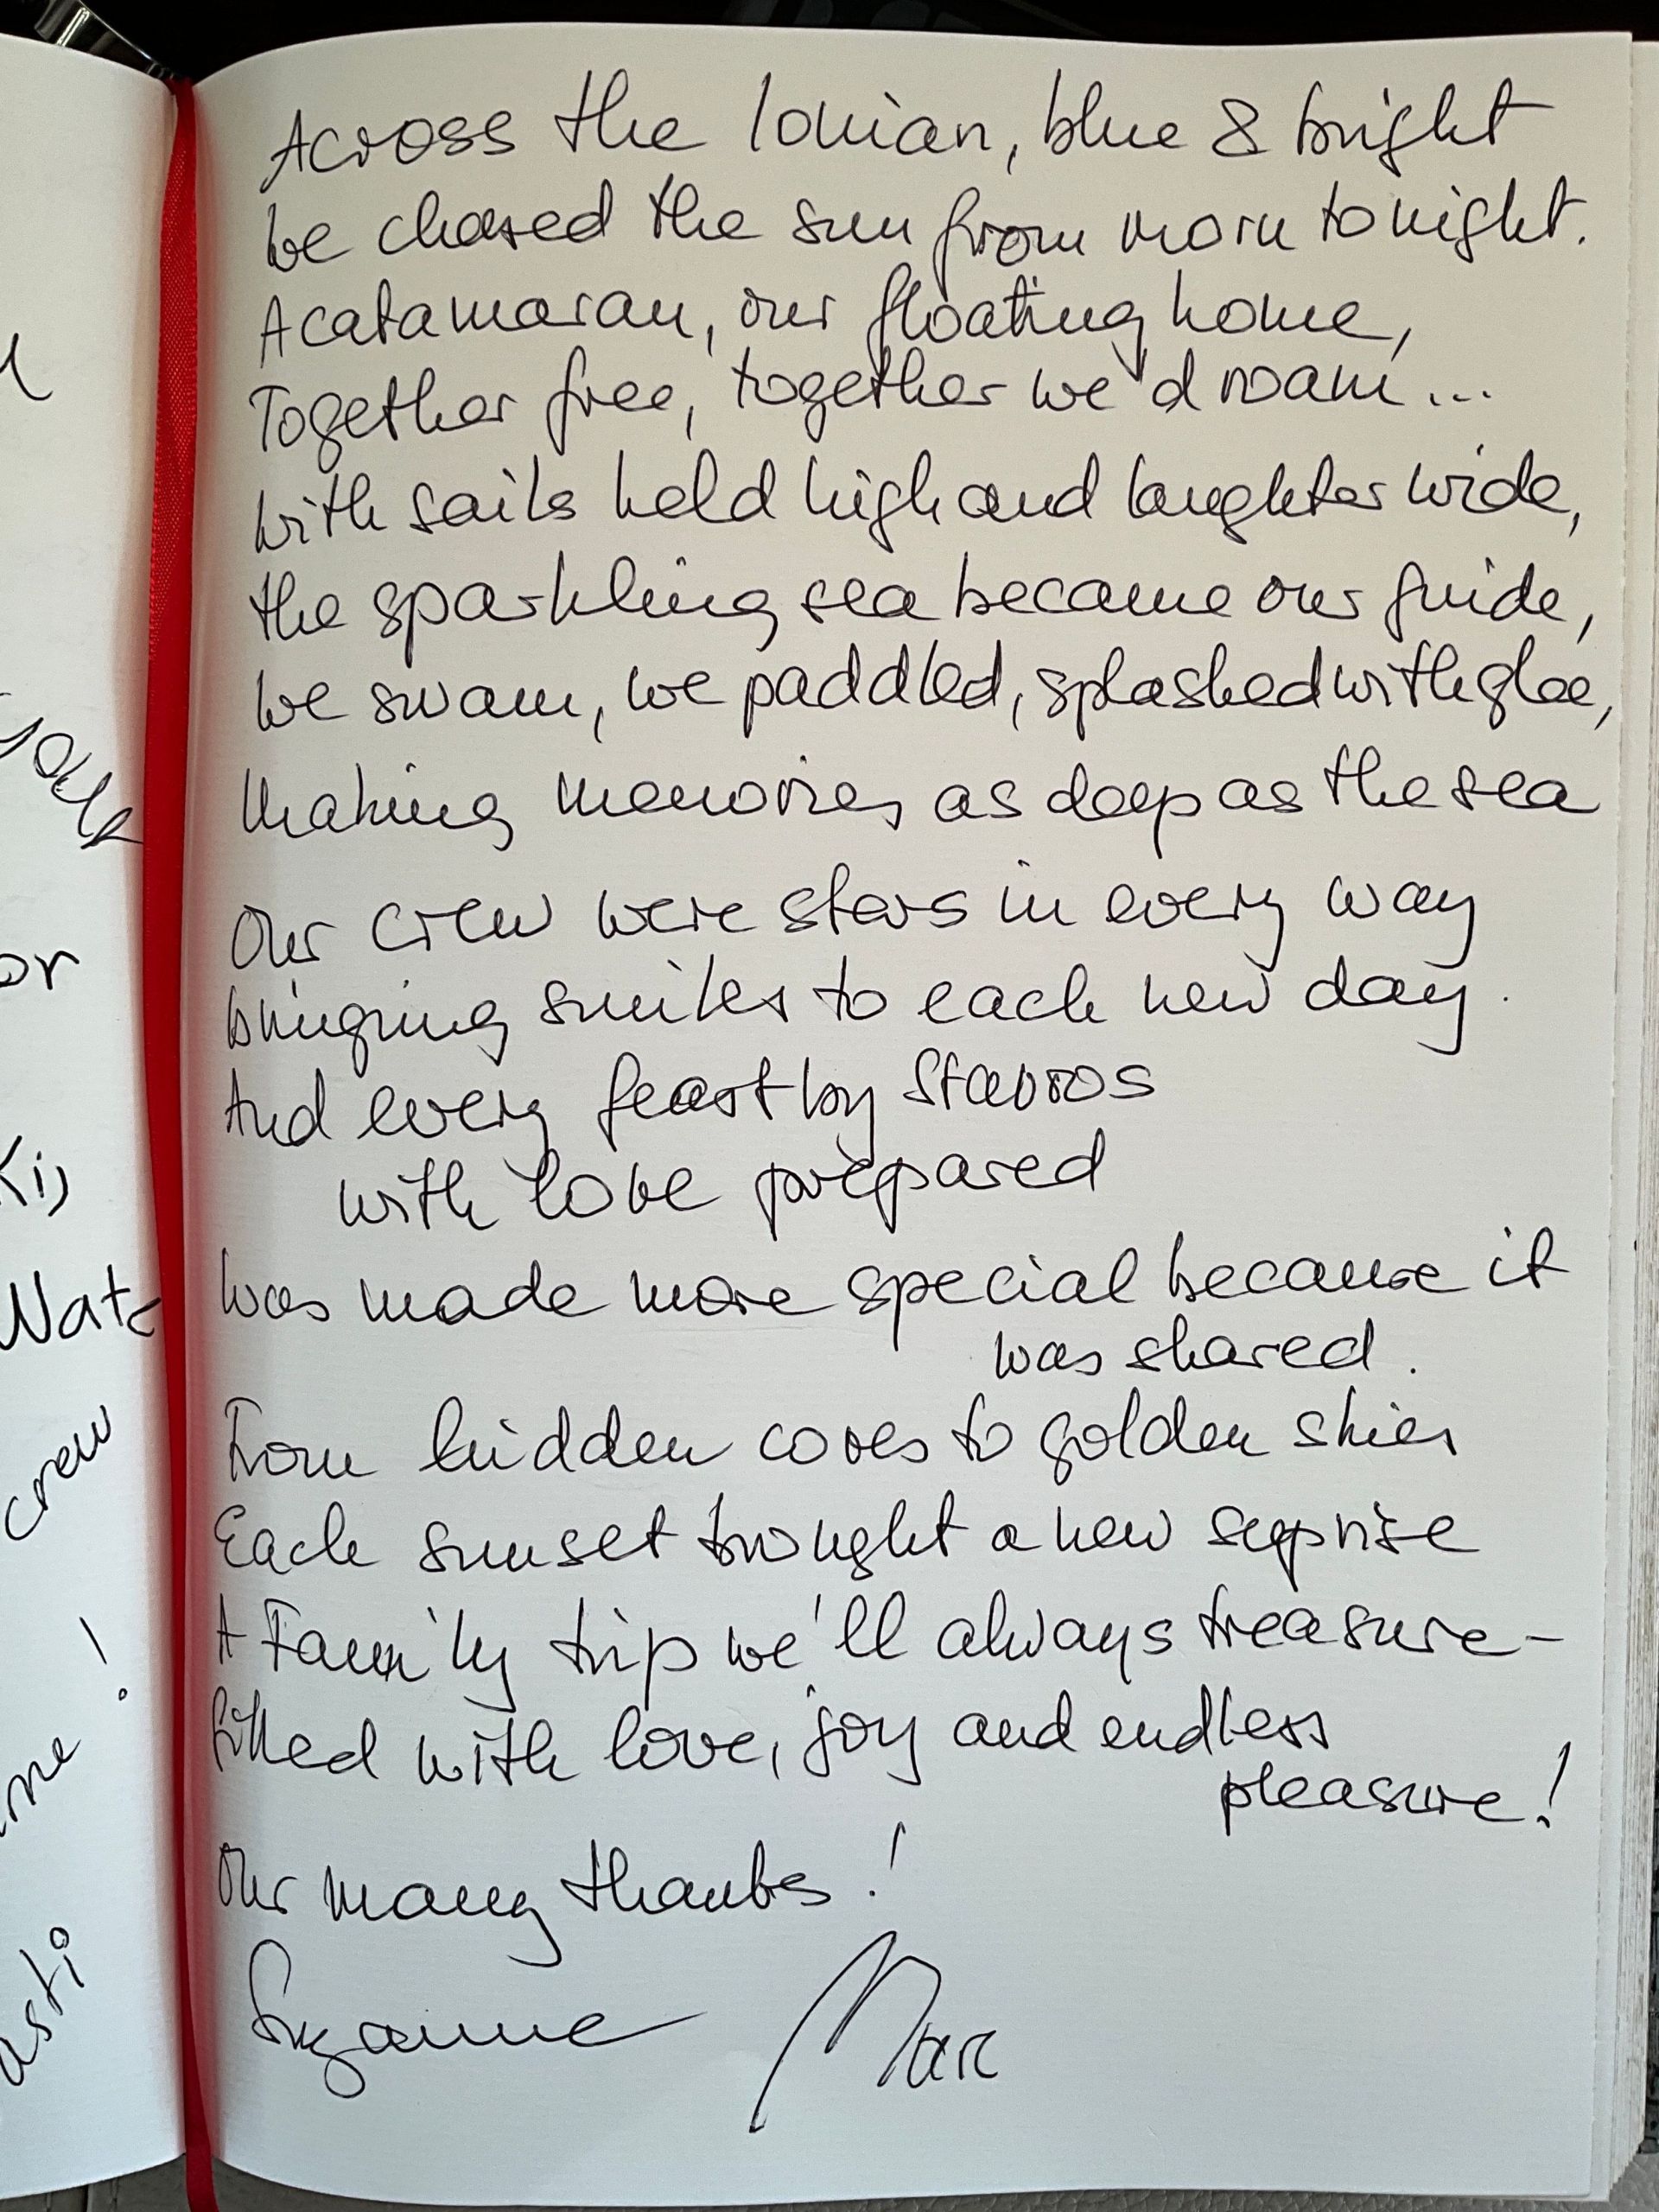 Across the Ionian, blue & bright
we chased the sun from morn to night.
A catamaran, our floating home,
Together free, together we'd roam...
With sails held high and laughter wide,
the sparkling sea became our guide,
We swam, we paddled, splashed with glee,
Making memories as deep as the sea
Our crew were stars in every way
bringing smiles to each new day.
And every feast by Stavros
with love prepared
Was made more special because it
was shared.
From hidden coves to golden skies
Each sunset brought a new suprise
A Family trip we'll always treasure-
filled with love, joy and endless
pleasure!
Our many thanks!
Suzanne Marc
or
crew
!